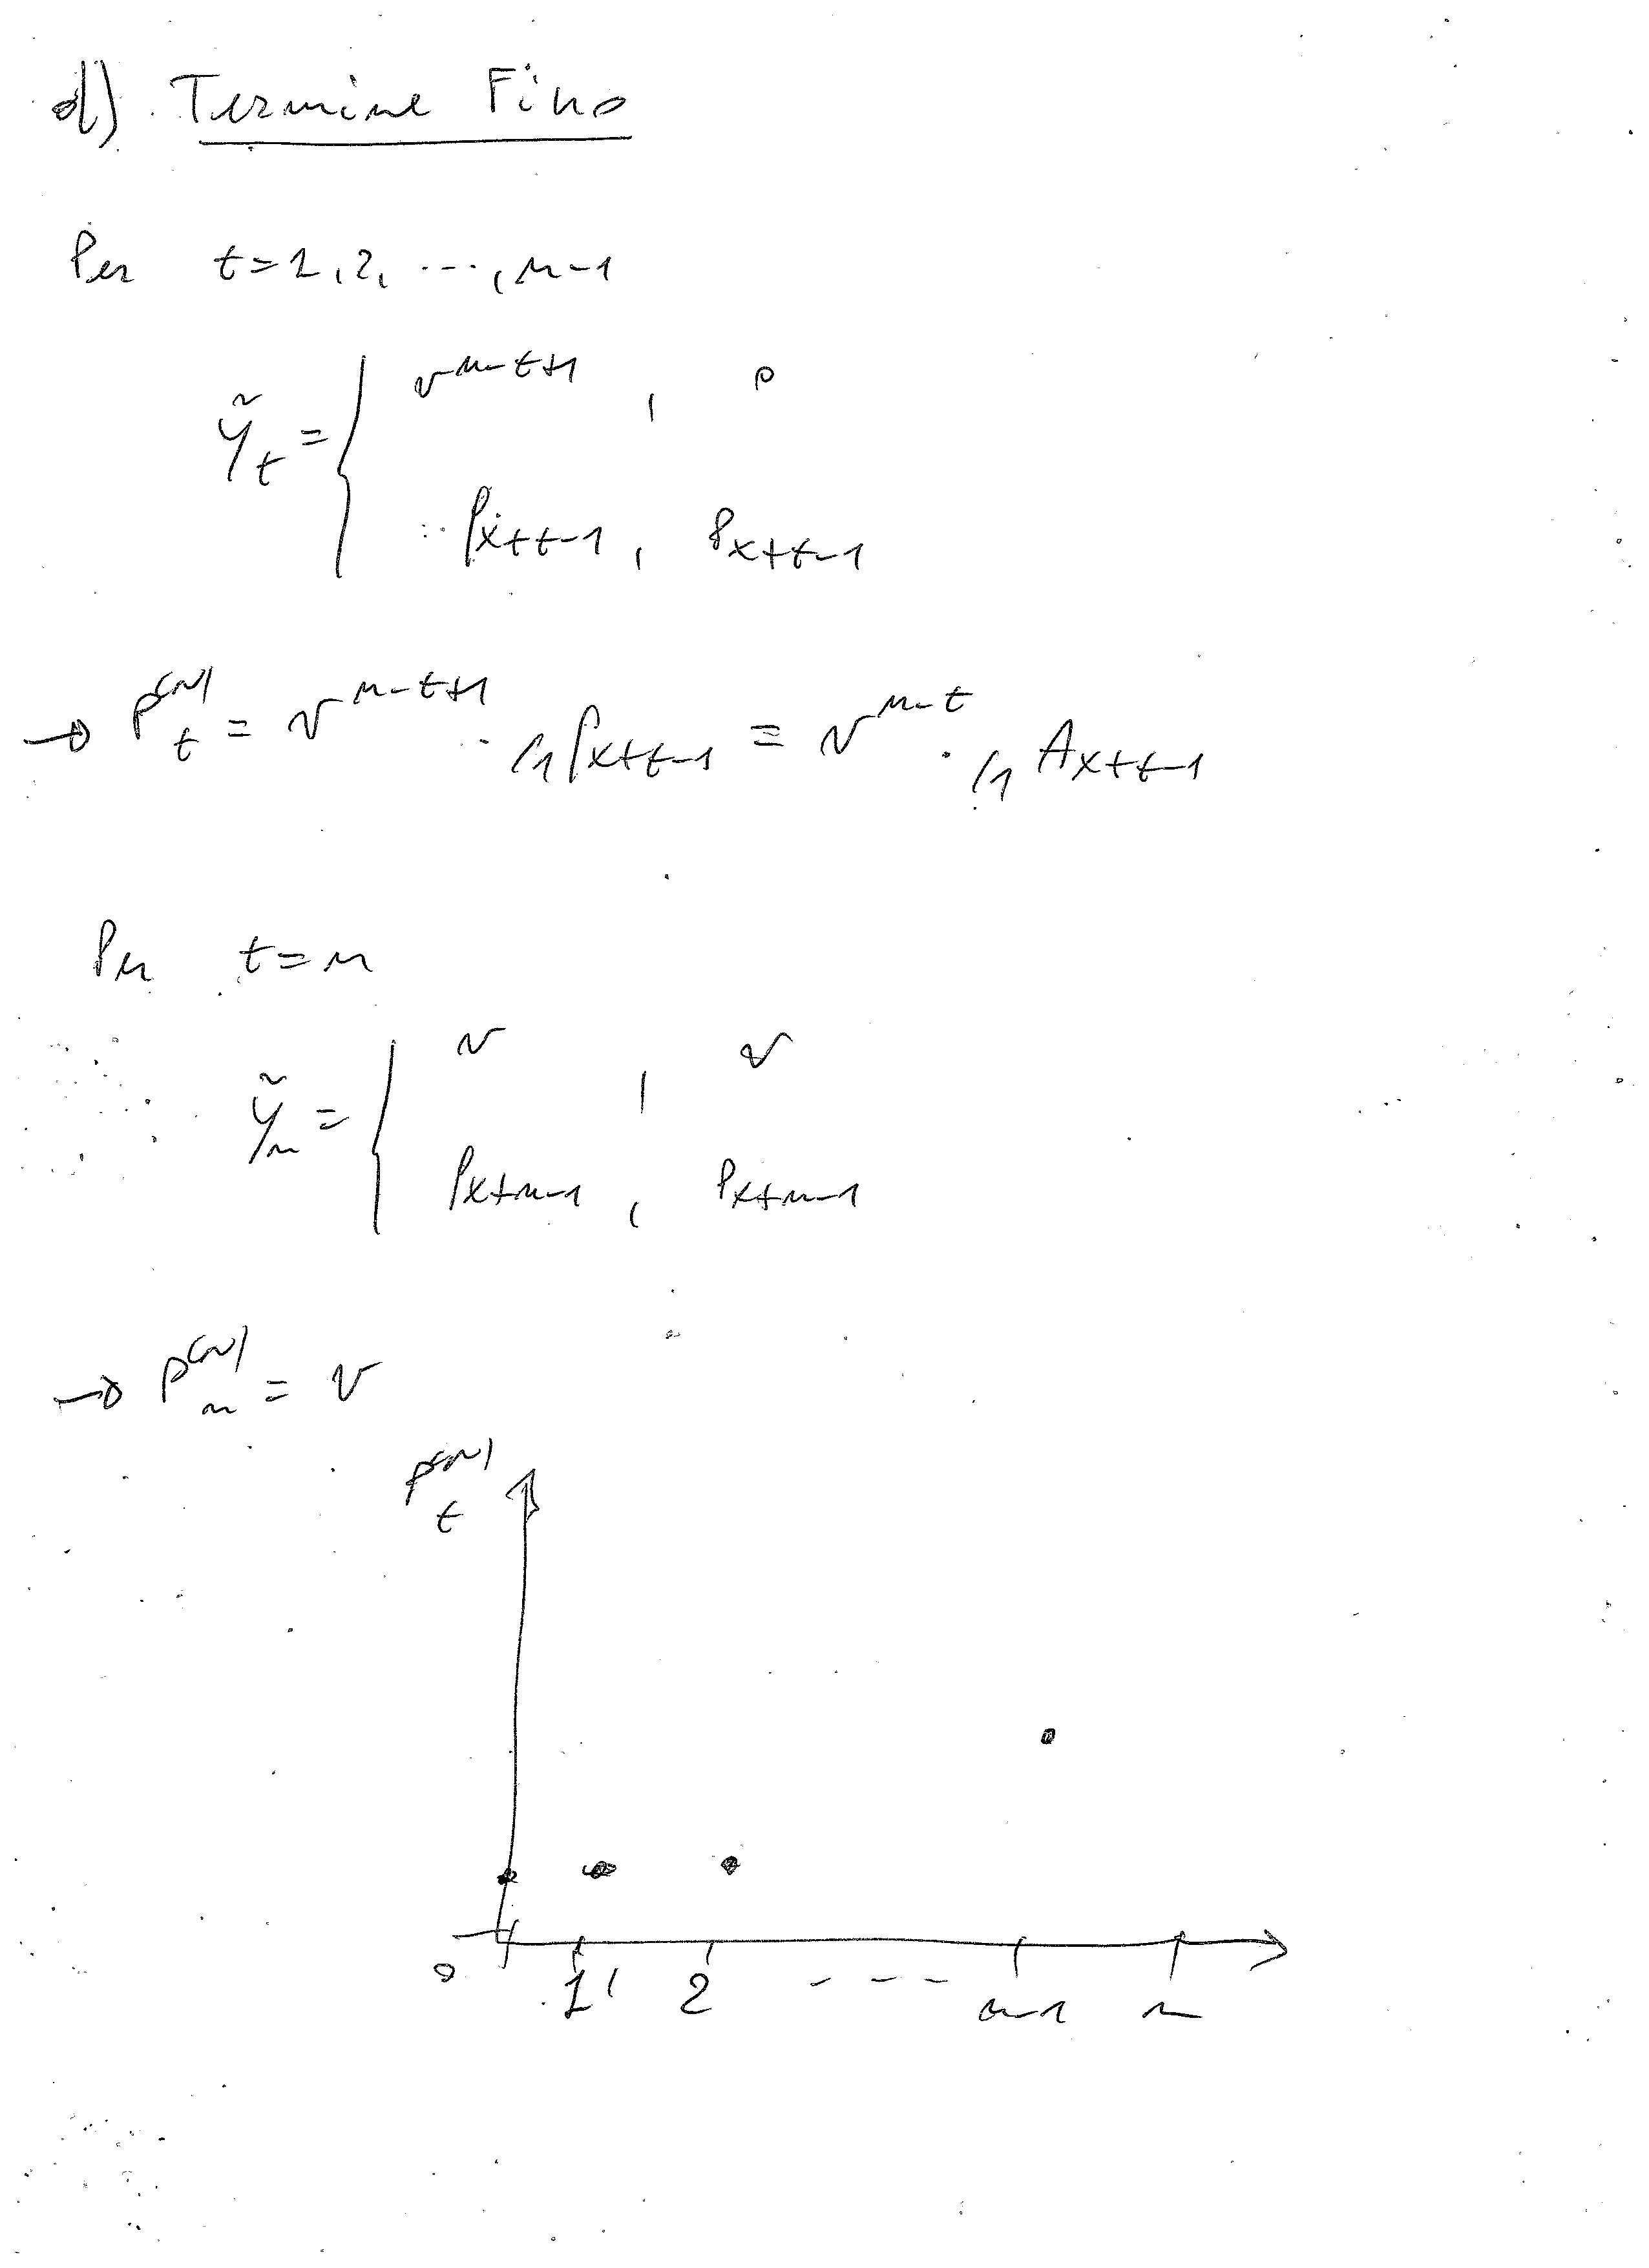 d) Termine Fisso
Per t=1,2, ...,n-1
v^{n-t+1} , 0
ỹ_t = {
p_{x+t-1} , q_{x+t-1}
→ P_t^{(N)} = v^{n-t+1} · _{/1}q_{x+t-1} = v^{n-t} · _{/1}A_{x+t-1}
Per t=n
v , v
ỹ_n = {
p_{x+n-1} , q_{x+n-1}
→ P_n^{(N)} = v
P_t^{(N)}
0 1 2 - - - - n-1 n